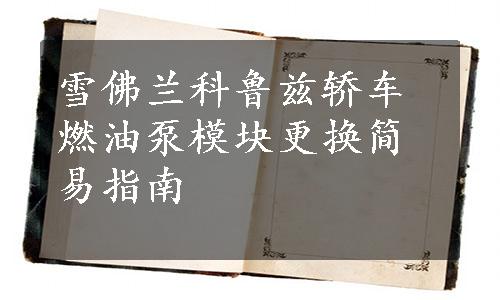 雪佛兰科鲁兹轿车
燃油泵模块更换简
易指南